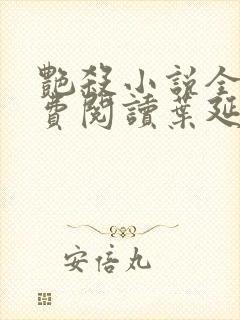 艷殺小說全
費閱讀葉延
安倍丸